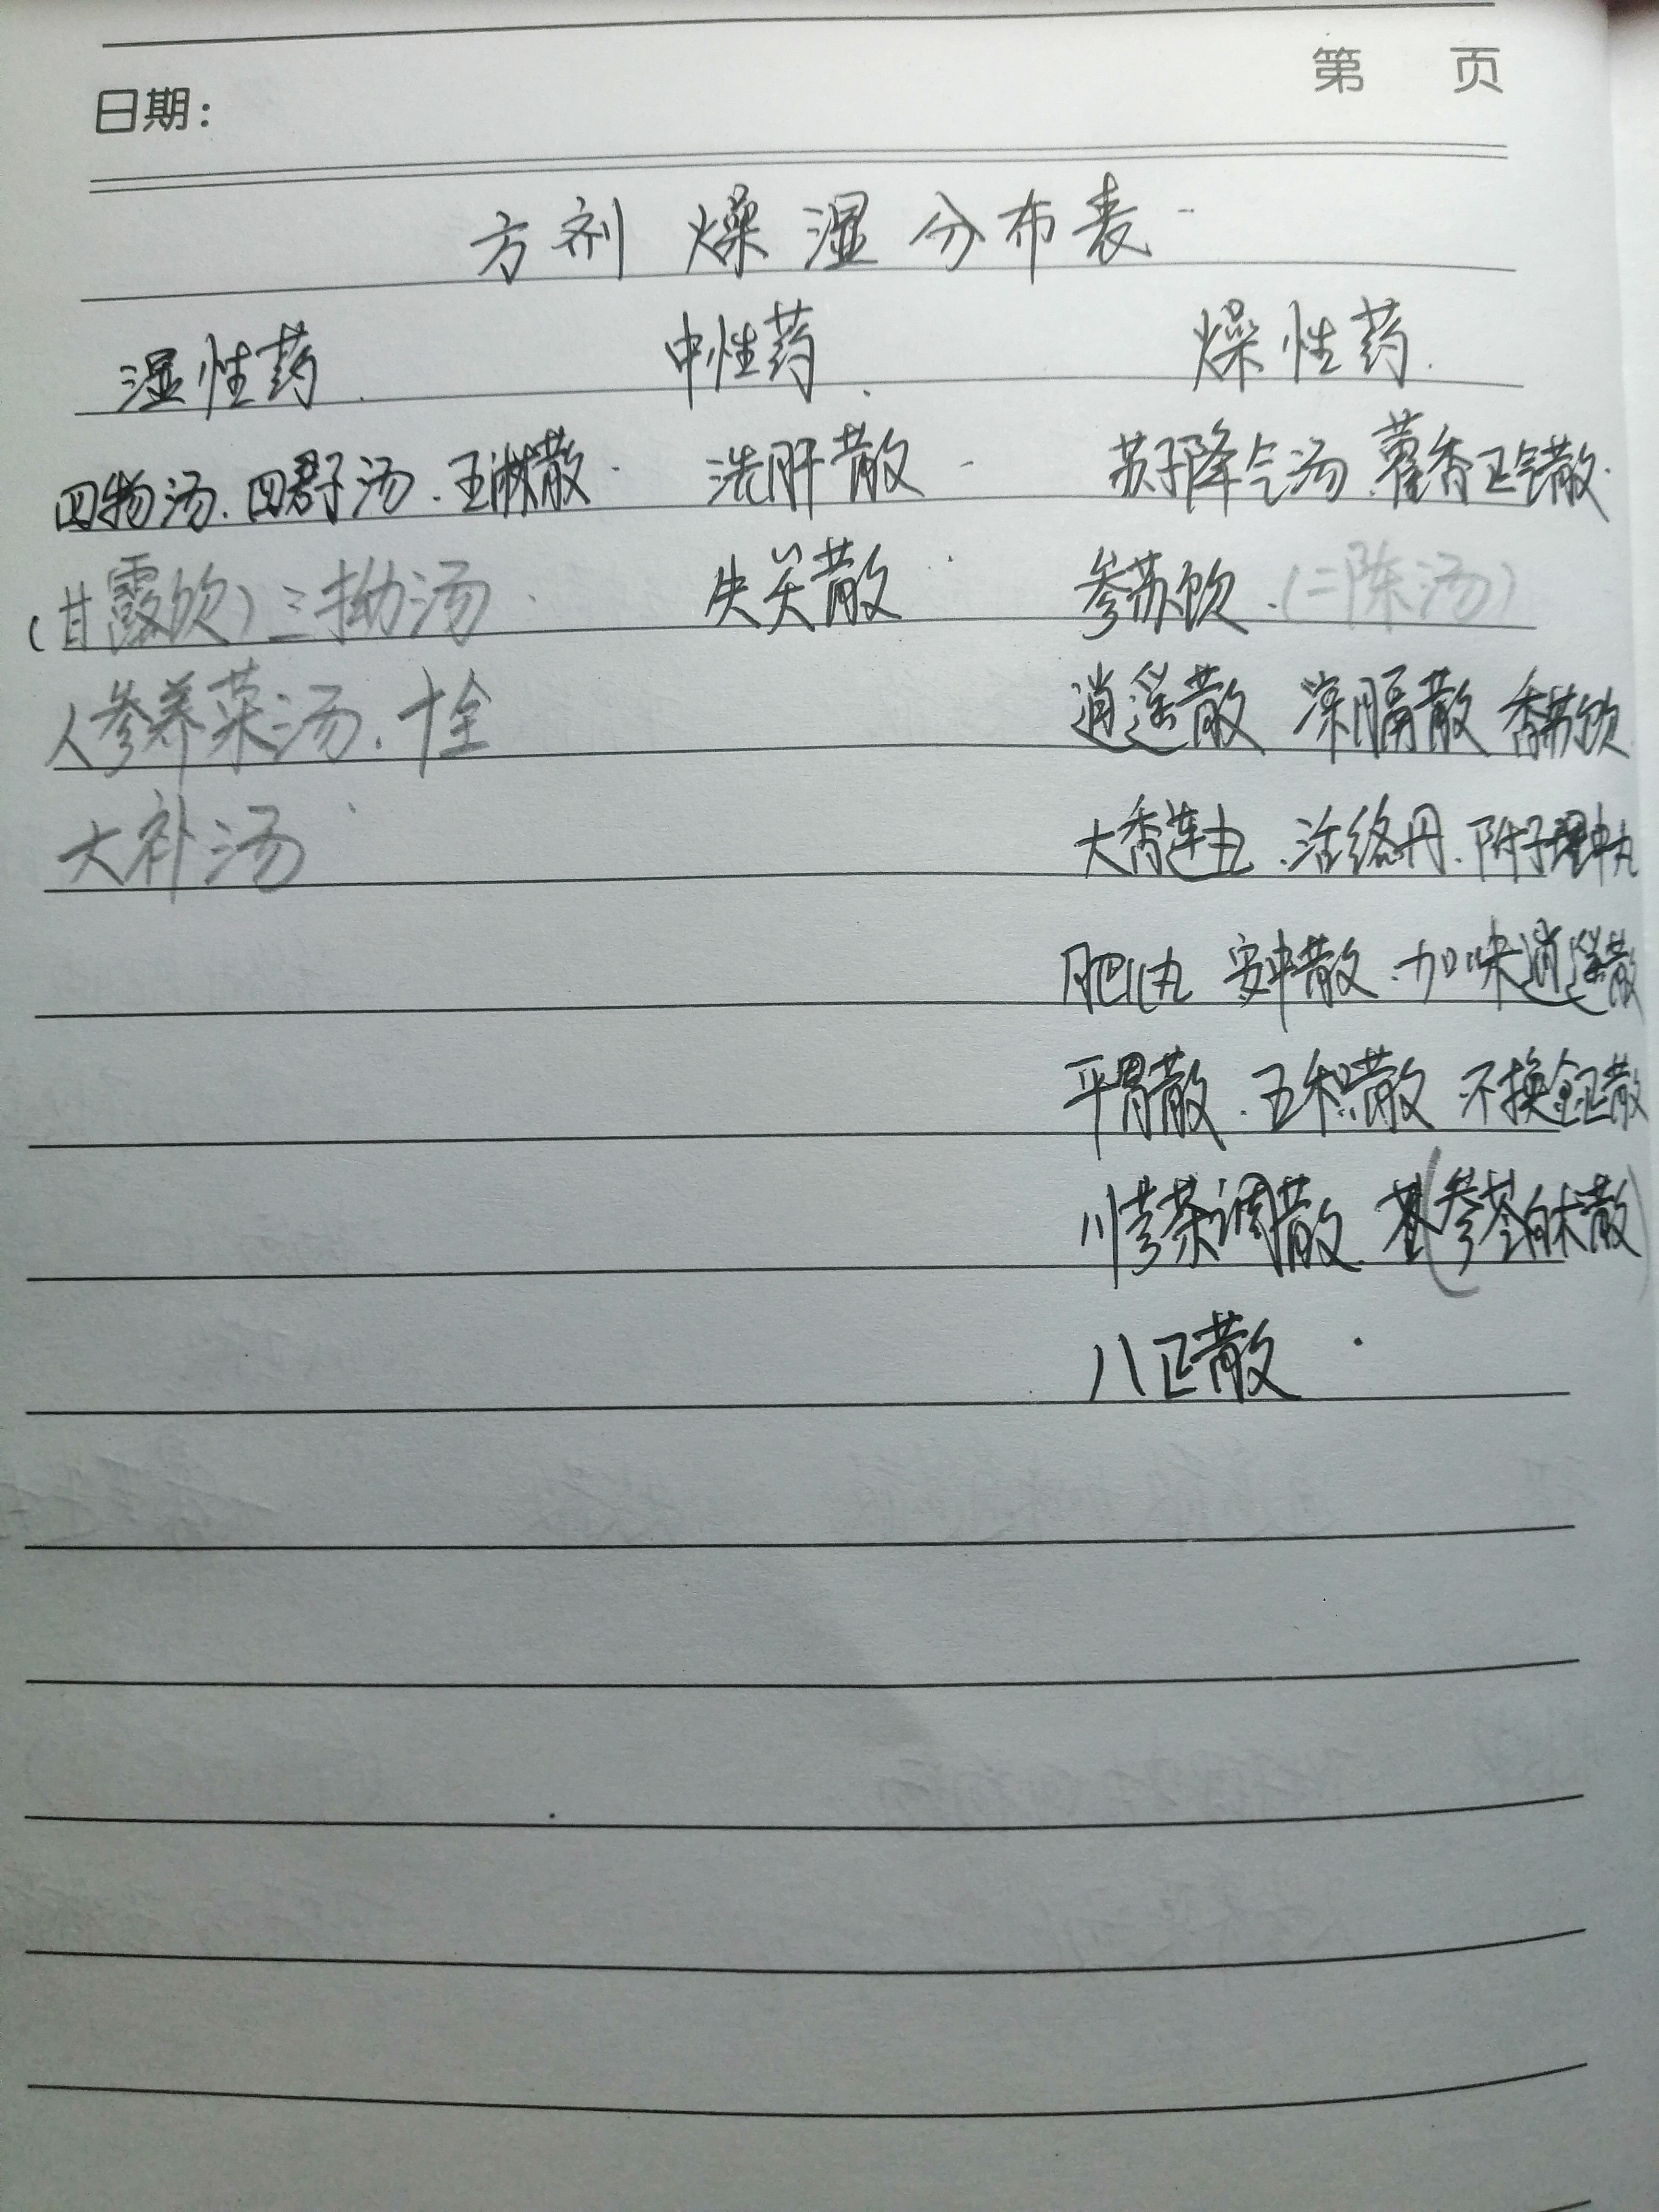 第 页
日期：
方剂 燥湿分布表
湿性药 中性药 燥性药
四物汤、四君子汤、五淋散 洗肝散 苏子降气汤 藿香正气散
（甘露饮）三拗汤 失关散 参苏饮、（二陈汤）
人参养荣汤、十全 逍遥散 凉膈散 香苏饮
大补汤 大香连丸、活络丹、附子理中丸
肥儿丸 安中散、加味逍遥散
平胃散、五积散 不换金正散
川芎茶调散、（参苓白术散）
八正散